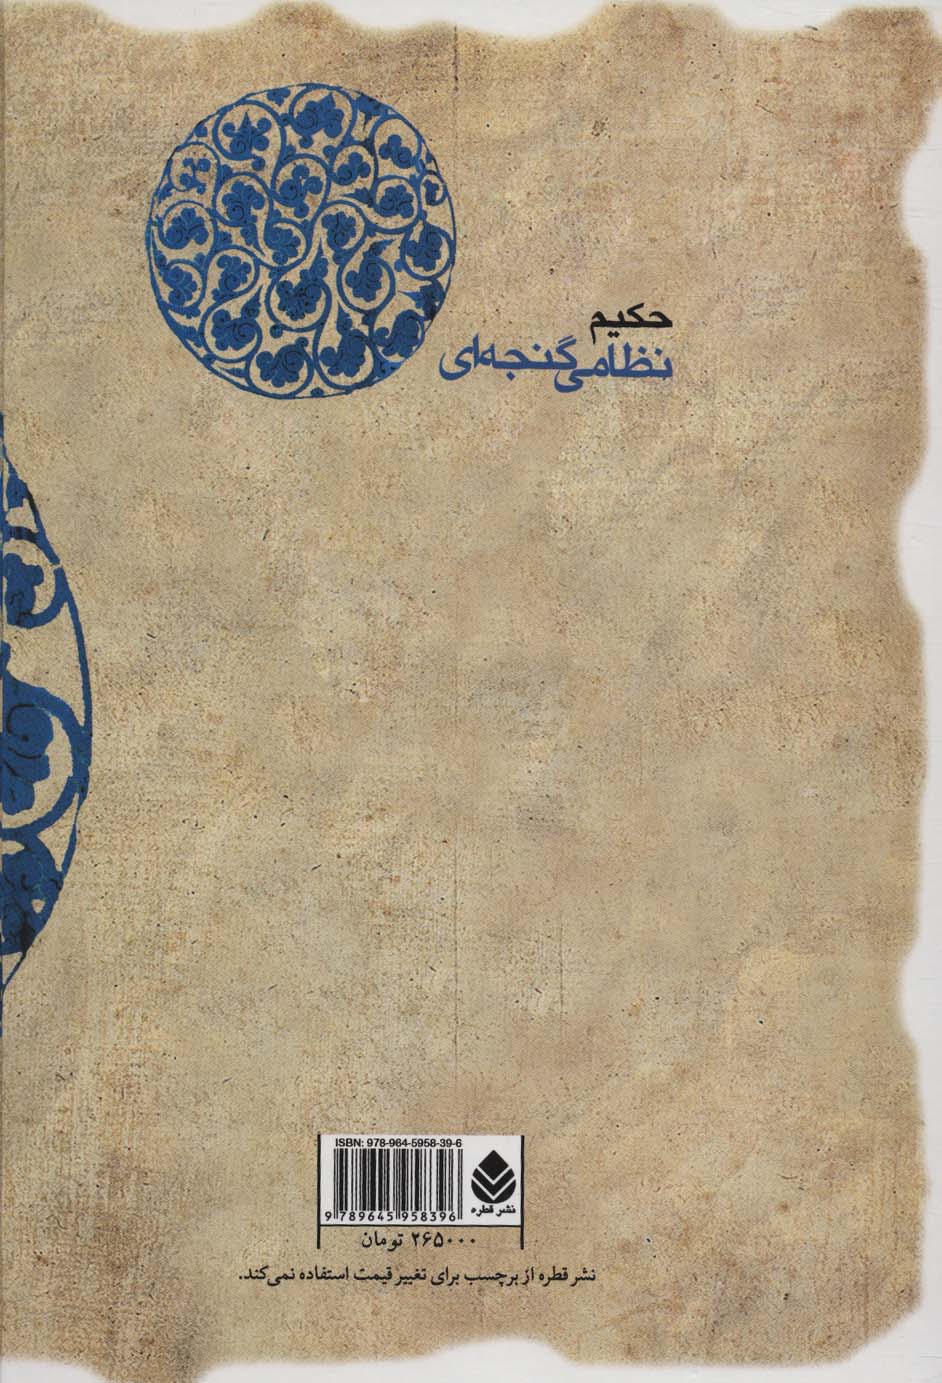 حکیم
نظامی گنجه‌ای
ISBN: 978-964-5958-39-6
9 789645 958396
نشر قطره
۲۶۵۰۰۰ تومان
نشر قطره از برچسب برای تغییر قیمت استفاده نمی‌کند.